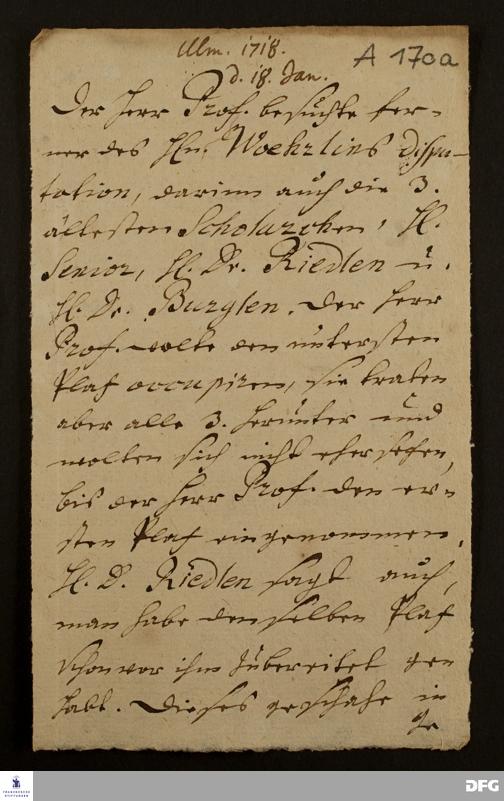 Ulm. 1718.
d. 18. Jan.
A 170a
Der Herr Prof. besuchte fer-
ner des Hn. Woehrlins dispu-
tation, darinn auch die 3.
ältesten Scholarchen, H.
Senior, H. Dr. Riedlen u.
H. Dr. Burglen. Der Herr
Prof. wolte den untersten
Plaz occupiren, sie traten
aber alle 3. herunter und
wolten sich nicht eher sezen,
bis der Herr Prof. den er-
sten Plaz eingenommen.
H. D. Riedlen sagt auch,
man habe denselben Plaz
schon vor ihn zubereitet ge-
habt. Dieses geschahe in
ge
FRANCKESCHE
STIFTUNGEN
DFG